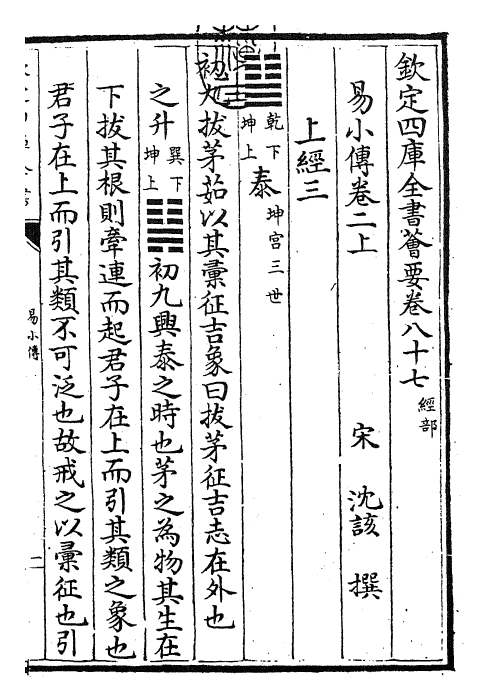 欽定四庫全書薈要卷八十七 經部
易小傳卷二上
宋 沈該 撰
上經三
乾下坤上 泰 坤宮三世
初九拔茅茹以其彙征吉象曰拔茅征吉志在外也
之升 巽下坤上 初九興泰之時也茅之為物其生在
下拔其根則牽連而起君子在上而引其類之象也
君子在上而引其類不可泛也故戒之以彙征也引
易小傳